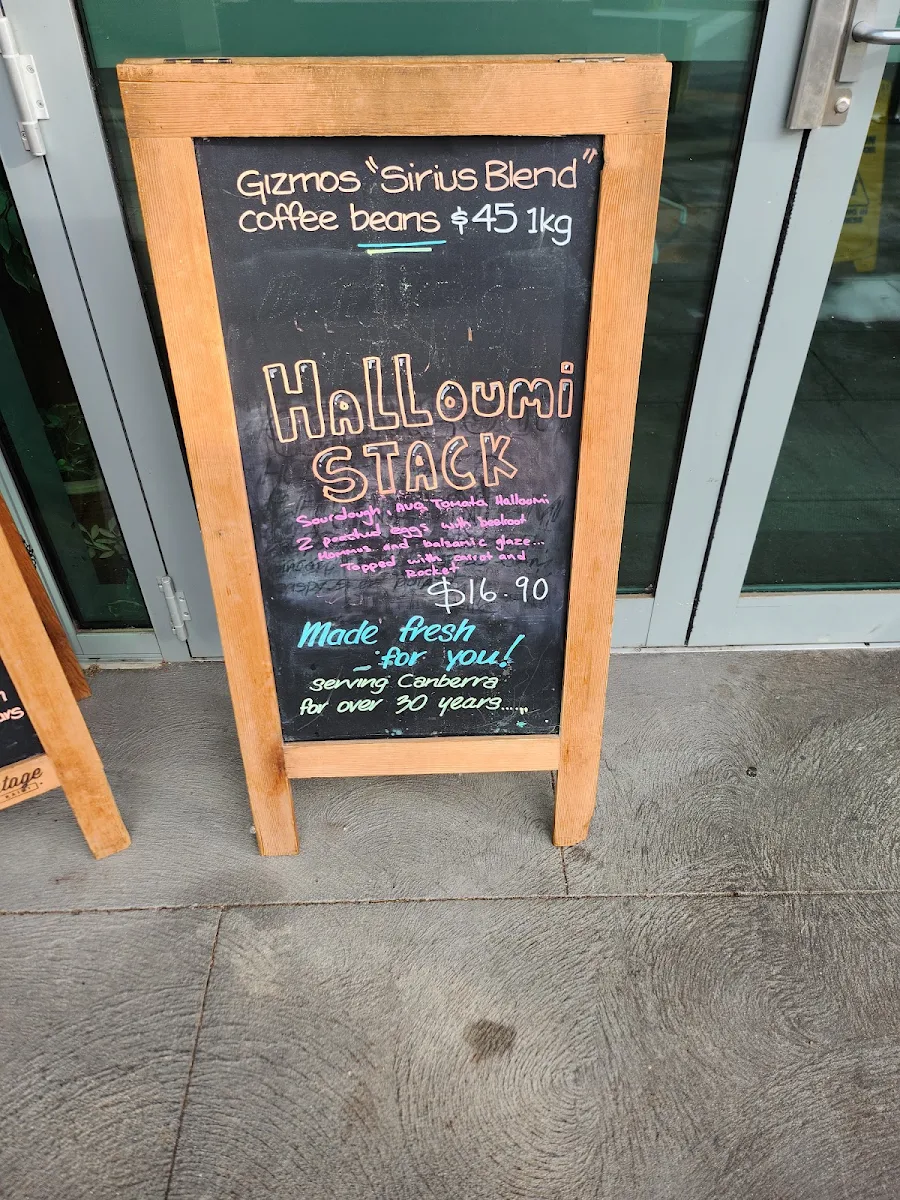 Gizmos "Sirius Blend"
coffee beans $45 1kg
HALLoumi
STACK
Sourdough, Avo, Tomato Halloumi
2 poached eggs with beetroot
Hommus and balsamic glaze...
Topped with carrot and
Rocket
$16.90
Made fresh
for you!
serving Canberra
for over 30 years.....
tage